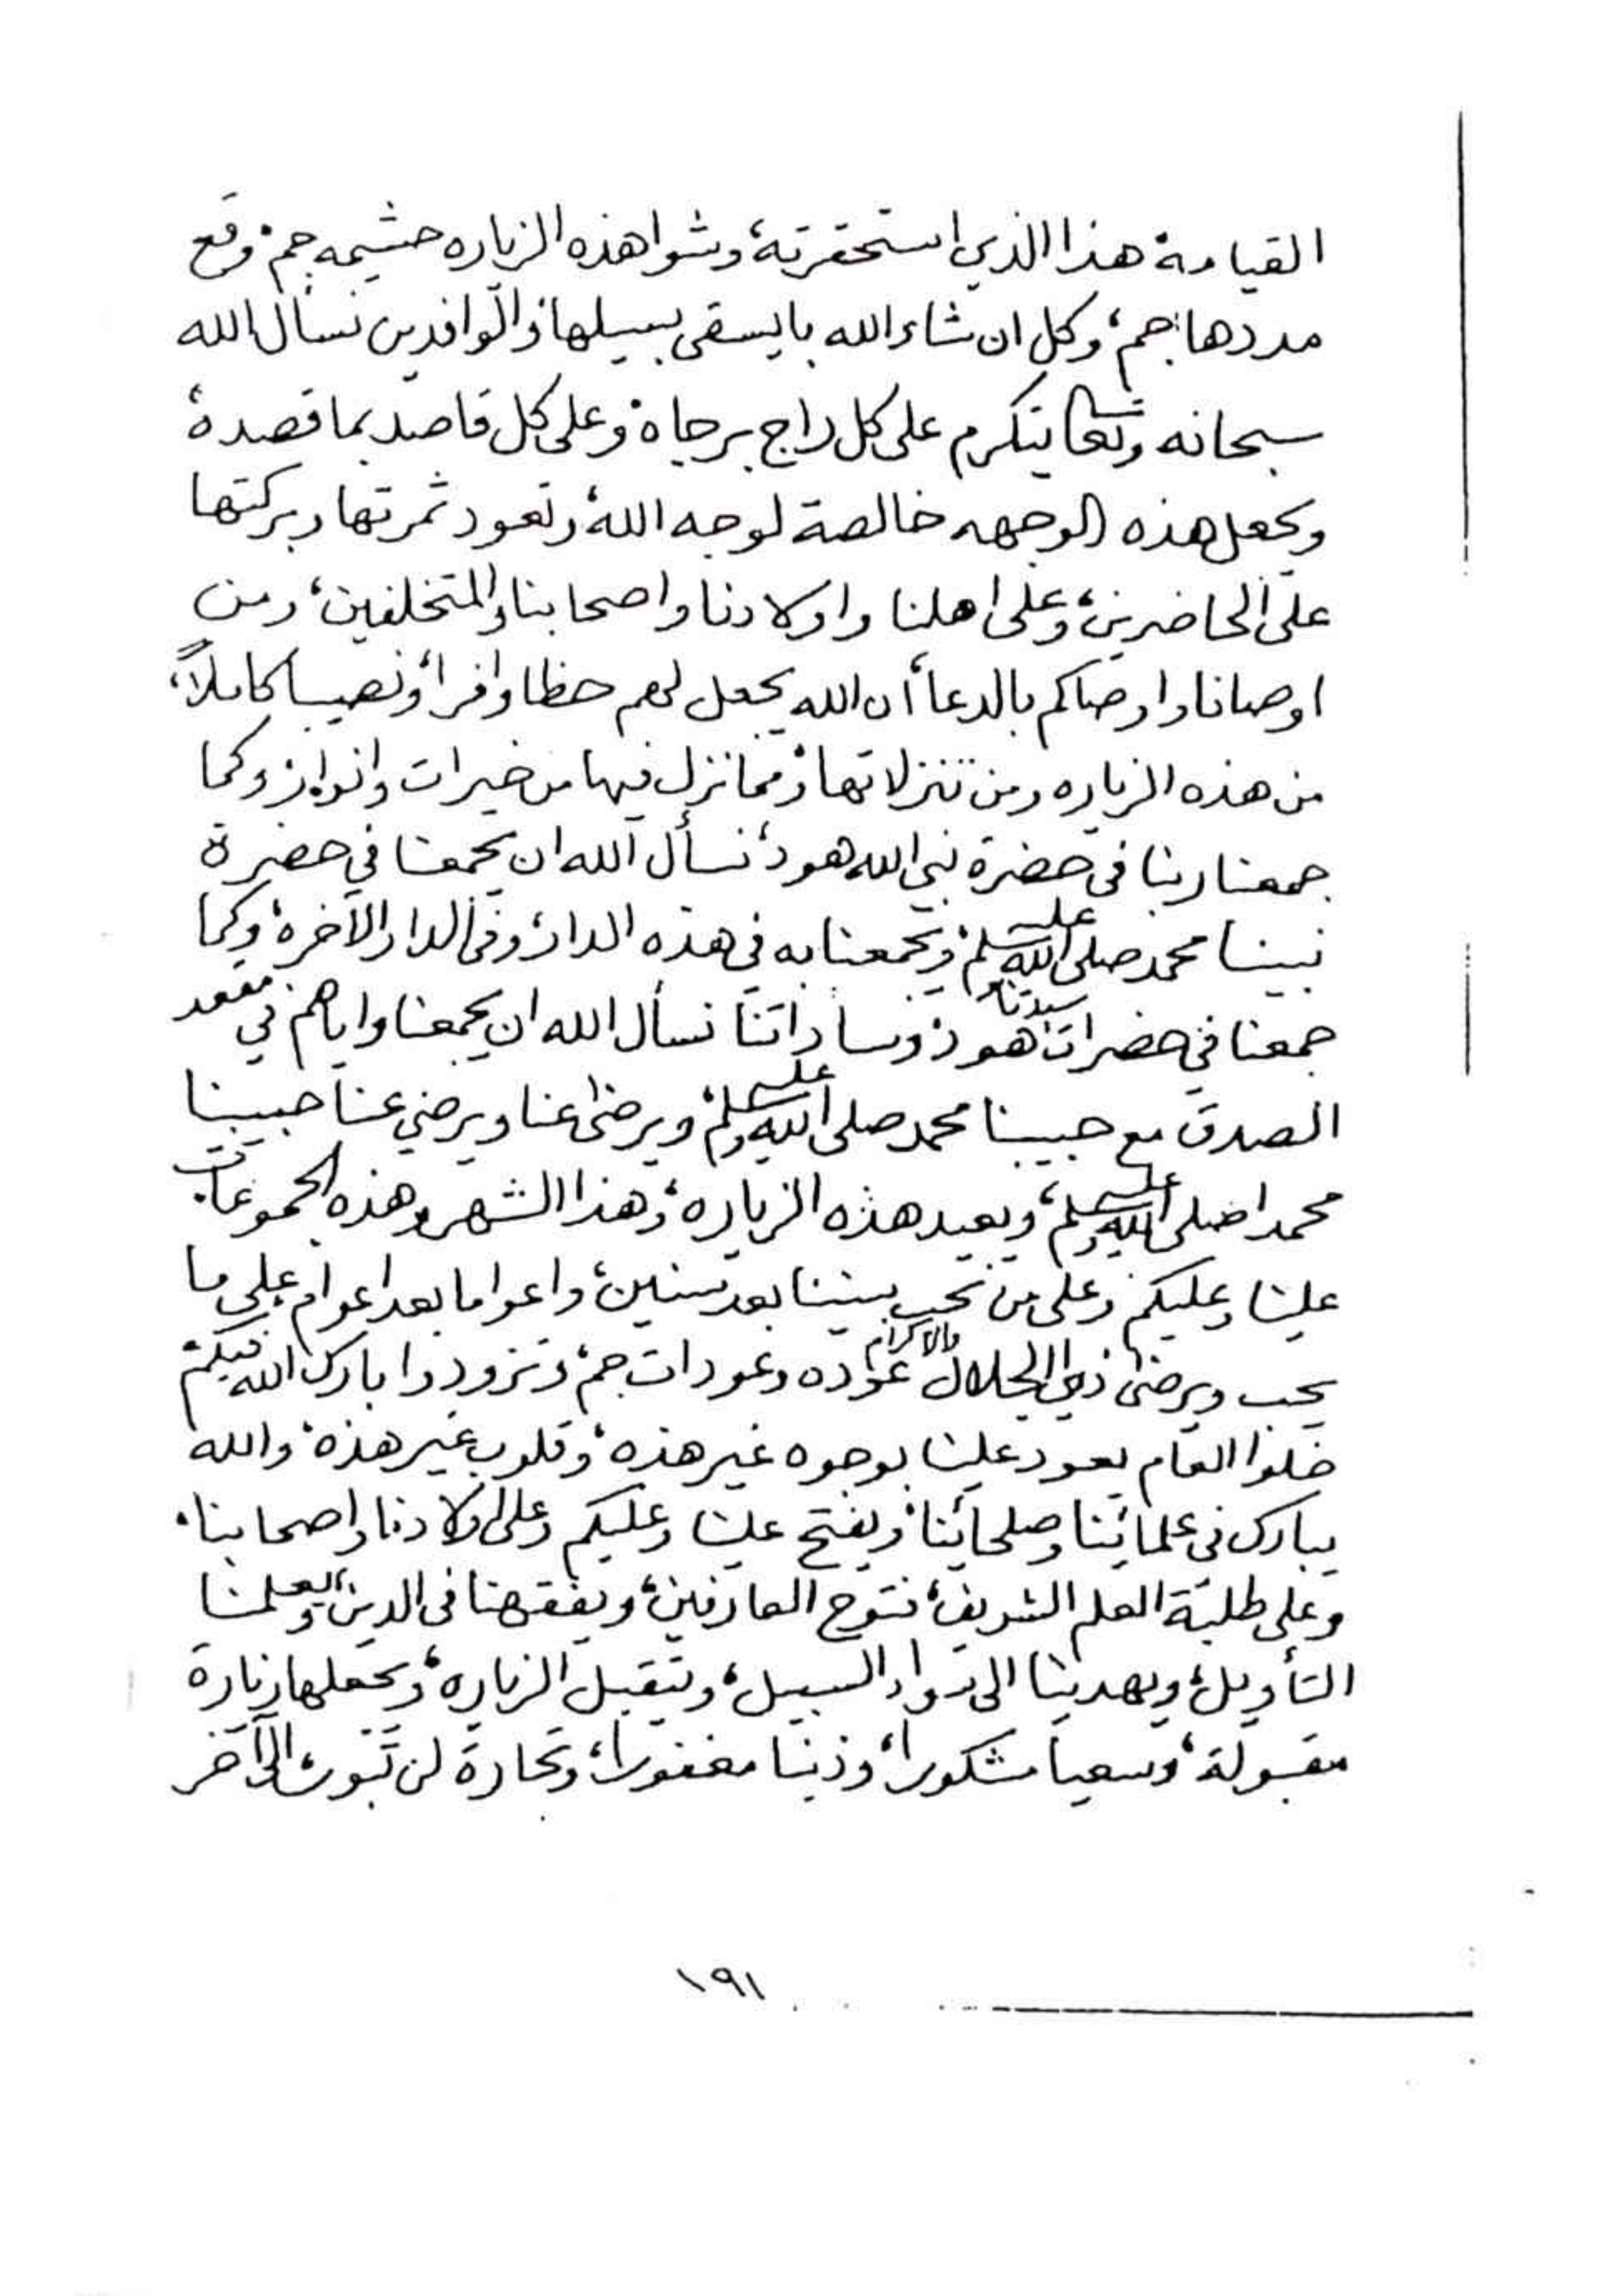 القيامة هذا الذي استحقرته، وشوا هذه الزياره حشيمه جم، وقع
مددها جم، وكل ان شاء الله بايسقى بسيلها، والوافدين نسأل الله
سبحانه وتعالى يتكرم على كل راج برجاه، وعلى كل قاصد بما قصده
ويجعل هذه الوجهه خالصة لوجه الله، وتعود ثمرتها وبركتها
على الحاضرين، وعلى اهلنا واولادنا واصحابنا والمتخلفين، ومن
اوصانا واوصاكم بالدعاء، ان الله يجعل لهم حظا وافرا، ونصيبا كاملاً،
من هذه الزياره ومن تنزلاتها، ومما نزل فيها من خيرات وانوار، وكما
جمعنا ربنا في حضرة نبي الله هود، نسأل الله ان يجمعنا في حضرة
نبينا محمد صلى الله عليه وسلم، ويجمعنا به في هذه الدار، وفي الدار الآخرة، وكما
جمعنا في حضرات سيدنا هود، وساداتنا نسأل الله ان يجمعنا واياهم في مقعد
الصدق مع حبيبنا محمد صلى الله عليه وسلم، ويرضى عنا ويرضي عنا حبيبنا
محمدا صلى الله عليه وسلم، ويعيد هذه الزياره، وهذا الشهر، وهذه الجموعات
علينا وعليكم وعلى من نحب بيننا بعد سنين، واعواما بعد اعوام على ما
يحب ويرضى ذي الجلال والاكرام عوده وعودات جم، وتزودوا بارك الله فيكم،
خلوا العام يعود علينا بوجوه غير هذه، وقلوب غير هذه، والله
يبارك في علمائنا وصلحائنا، ويفتح علينا وعليكم وعلى اولادنا واصحابنا،
وعلى طلبة العلم الشريف، فتوح العارفين، ويفقهنا في الدين، ويعلمنا
التأويل، ويهدينا الى سواء السبيل، ويتقبل الزياره، ويجعلها زيارة
مقبولة، وسعيا مشكورا، وذنبا مغفورا، وتجارة لن تبور، الى آخر
١٩١